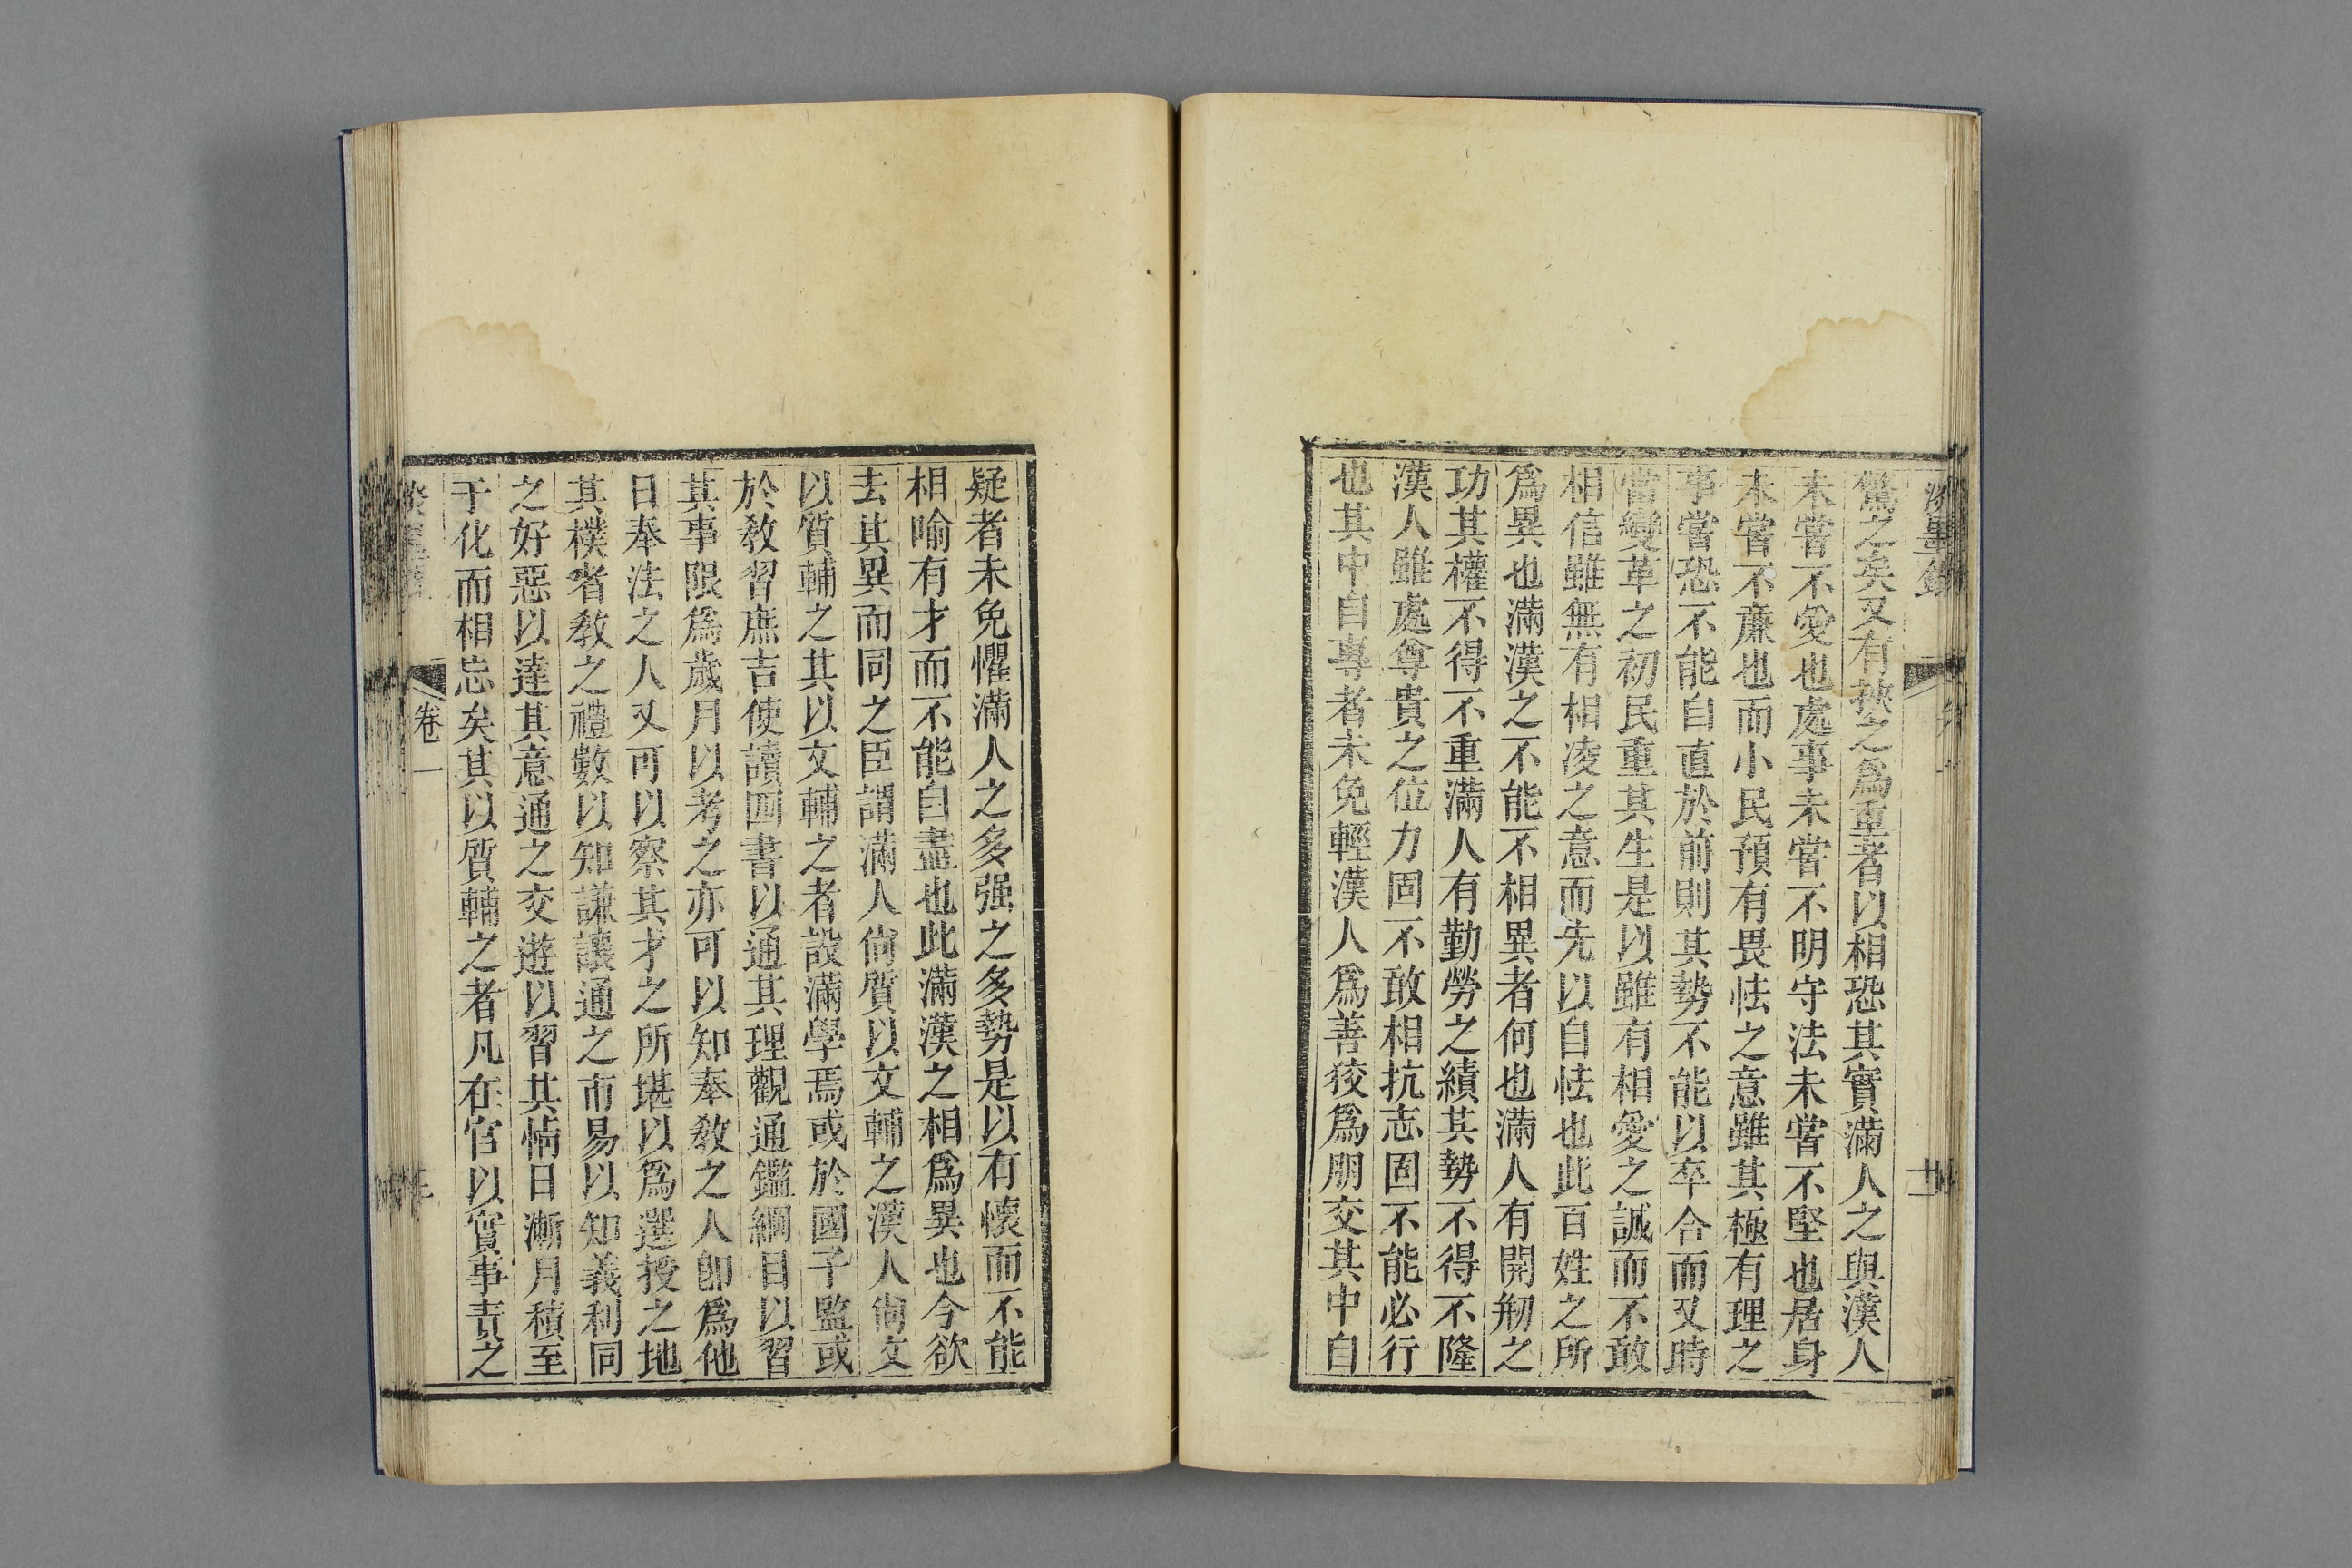 驚之矣又有挾之爲重者以相恐其實滿人之與漢人
未嘗不愛也處事未嘗不明守法未嘗不堅也居身
未嘗不亷也而小民預有畏怯之意雖其極有理之
事嘗恐不能自直於前則其勢不能以卒合而又時
當變革之初民重其生是以雖有相愛之誠而不敢
相信雖無有相凌之意而先以自怯也此百姓之所
爲異也滿漢之不能不相異者何也滿人有開剏之
功其權不得不重滿人有勤勞之績其勢不得不隆
漢人雖處尊貴之位力固不敢相抗志固不能必行
也其中自專者未免輕漢人爲善狡爲朋交其中自
十二
疑者未免懼滿人之多强之多勢是以有懷而不能
相喻有才而不能自盡也此滿漢之相爲異也今欲
去其異而同之臣謂滿人尙質以文輔之漢人尙文
以質輔之其以文輔之者設滿學焉或於國子監或
於敎習庶吉使讀四書以通其理觀通鑑綱目以習
其事限爲歲月以考之亦可以知奉敎之人卽爲他
日奉法之人又可以察其才之所堪以爲選授之地
其樸者敎之禮數以知謙讓通之市易以知義利同
之好惡以達其意通之交遊以習其情日漸月積至
于化而相忘矣其以質輔之者凡在官以實事責之
卷一